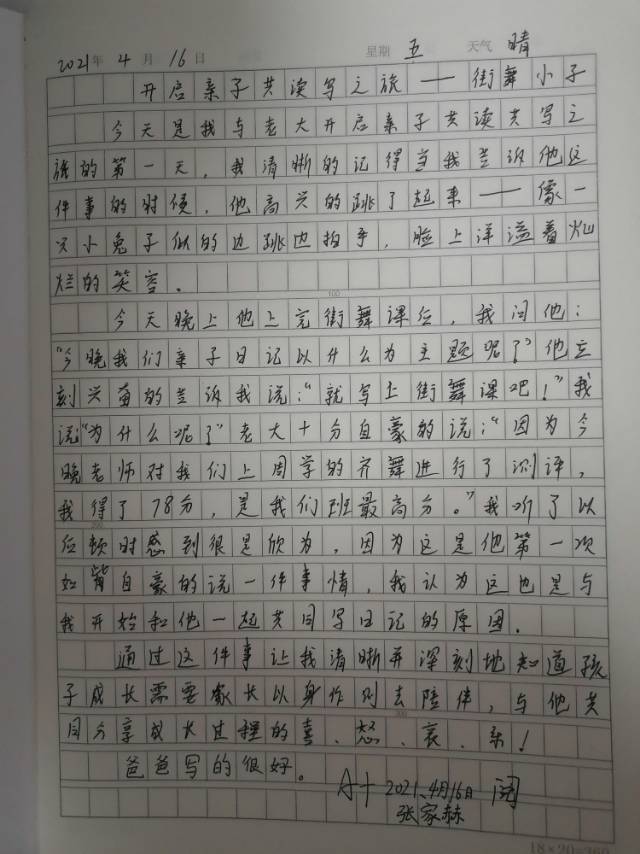 2021年 4月 16日 星期 五 天气 晴
开启亲子共读写之旅——街舞小子
今天是我与老大开启亲子共读共写之
旅的第一天，我清晰的记得当我告诉他这
件事的时候，他高兴的跳了起来——像一
只小兔子似的边跳边拍手，脸上洋溢着灿
烂的笑容。
100
今天晚上他上完街舞课后，我问他：
“今晚我们亲子日记以什么为主题呢？”他立
刻兴奋的告诉我说：“就写上街舞课吧！”我
说“为什么呢？”老大十分自豪的说：“因为今
晚老师对我们上周学的齐舞进行了测评，
我得了78分，是我们班最高分。”我听了以
200
后顿时感到很是欣为，因为这是他第一次
如此自豪的说一件事情，我认为这也是与
我开始和他一起共同写日记的原因。
通过这件事让我清晰并深刻地知道孩
子成长需要家长以身作则去陪伴，与他共
300
同分享成长过程的喜、怒、哀、乐！
爸爸写的很好。
A+ 2021.4月16日 阅
张家赫
18×20=360